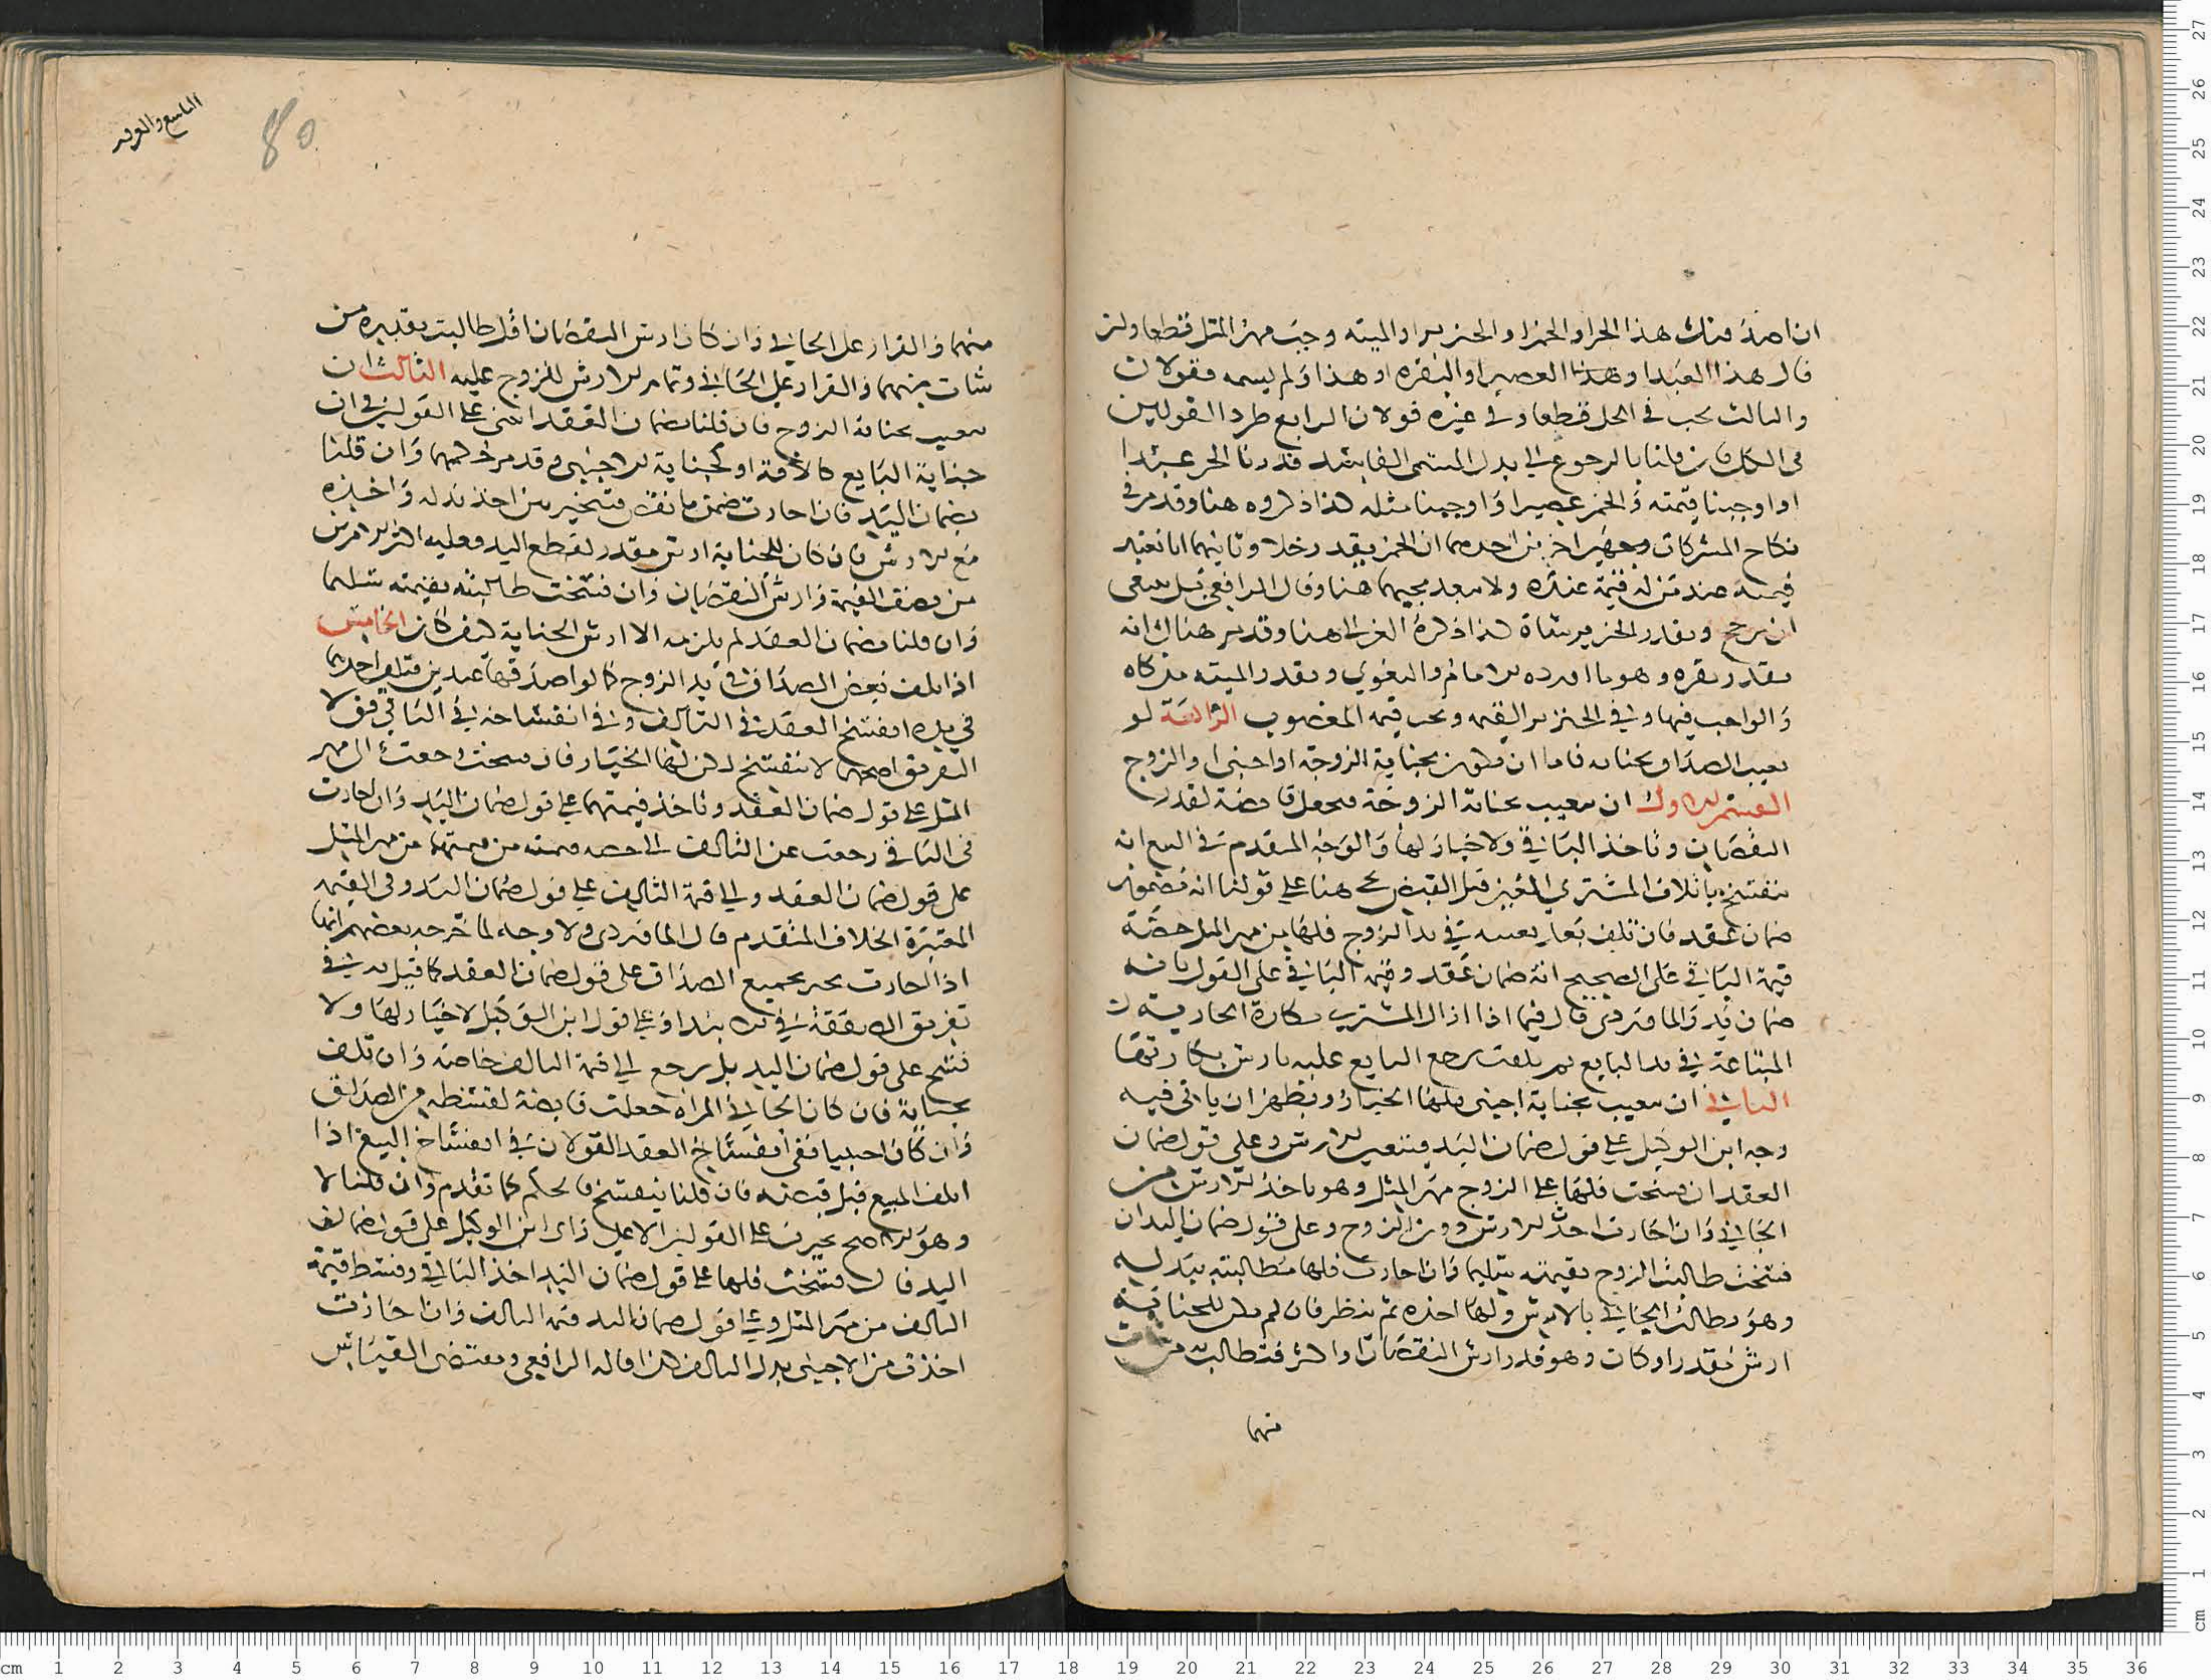 ان اصدقتك هذا الحر او الخمر او الخنزير او الميته وجب مهر المثل قطعا ولو
قال هذا العبد او هذا العصير او البقره او هذا ولم يسمه فقولان
والثالث يجب في الحل قطعا وفي غيره قولان الرابع طرد القولين
في الكل فان قلنا بالرجوع الى بدل المسمى الفاسد قدرنا الحر عبدا
او اوجبنا قيمته والخمر عصيرا واوجبنا مثله كذا ذكروه هنا وقد مر في
نكاح المشركات وجهين اخرين احدهما ان الخمر يقدر خلا وثانيهما انا نعتبر
قيمته عند من له قيمة عنده ولا يبعد مجيهما هنا وقال الرافعي بل ينبغي
ان يرجح ويقدر الخنزير شاة كذا ذكره الغزالي هنا وقد مر هناك انه
يقدر بقره وهو ما اورده الامام والبغوي ويقدر الميته مذكاه
والواجب فيها وفي الخنزير القيمه وتجب قيمه المغصوب الرابعة لو
تعيب الصداق بجنايه فاما ان يكون بجناية الزوجة او اجنبي او الزوج
القسم الاول ان يتعيب بجناية الزوجة فتجعل قابضة لقدر
النقصان وتاخذ الباقي ولا خيار لها والوجه المتقدم في البيع انه
ينفسخ باتلاف المشتري المبيع قبل القبض يجي هنا على قولنا انه مضمون
ضمان عقد فان تلف بعد تعيبه في يد الزوج فلها من مهر المثل حصة
قيمة الباقي على الصحيح انه ضمان عقد وقيمه الباقي على القول بانه
ضمان يد والماوردي قال فيما اذا ازال المشتري بكارة الجارية
المبتاعة في يد البايع ثم تلفت يرجع البايع عليه بارش بكارتها
الثاني ان يتعيب بجناية اجنبي فلها الخيار ويظهر ان ياتي فيه
وجه ابن الوكيل على قول ضمان اليد فيتعين الارش وعلى قول ضمان
العقد ان فسخت فلها على الزوج مهر المثل وهو ياخذ الارش من
الجاني وان اجازت اخذت الارش دون الزوج وعلى قول ضمان اليد ان
فسخت طالبت الزوج بقيمته سليما وان اجازت فلها مطالبته ببدله
وهو يطالب الجاني بالارش ولها اخذه ثم ينظر فان لم يكن للجناية
ارش مقدر او كان وهو قدر ارش النقصان او اكثر فتطالب به من شات
منهما
التاسع والعشر
80
منهما والقرار على الجاني وان كان ارش النقصان اقل طالبت بقدره من
شات منهما والقرار على الجاني وتمام الارش للزوج عليه الثالث ان
يتعيب بجناية الزوج فان قلنا بضمان العقد انبنى على القولين في ان
جناية البايع كالافة او كجناية الاجنبي وقد مر حكمهما وان قلنا
بضمان اليد فان اجازت ضمن ما نقص فتتخير بين اخذ بدله واخذه
مع الارش فان كان للجناية ارش مقدر كقطع اليد فعليه اكثر الامرين
من نصف القيمة وارش النقصان وان فسخت طالبته بقيمته سليما
وان قلنا بضمان العقد لم يلزمه الا ارش الجناية كيف كان الخامس
اذا تلف بعض الصداق في يد الزوج كما لو اصدقها عبدين فتلف احدهما
في يده انفسخ العقد في التالف وفي انفساخه في الباقي قولا
التفريق اصحهما لا ينفسخ لكن لها الخيار فان فسخت رجعت الى مهر
المثل على قول ضمان العقد وتاخذ قيمتهما على قول ضمان اليد وان اجازت
في الباقي رجعت عن التالف الى حصه قيمته من قيمتهما من مهر المثل
على قول ضمان العقد والى قيمة التالف على قول ضمان اليد وفي القيمه
المعتبرة الخلاف المتقدم قال الماوردي ولا وجه لما خرجه بعضهم انها
اذا اجازت تجيز بجميع الصداق على قول ضمان العقد كما قيل به في
تفريق الصفقة في بابها ابتداء وعلى قول ابن الوكيل لا خيار لها ولا
فسخ على قول ضمان اليد بل يرجع الى قيمة التالف خاصة وان تلف
بجناية فان كان الجاني المراه جعلت قابضة لقسطه من الصداق
وان كان اجنبيا ففي انفساخ العقد القولان في انفساخ البيع اذا
اتلف المبيع قبل قبضه فان قلنا ينفسخ فالحكم كما تقدم وان قلنا لا
وهو الاصح تخيرت على القولين الا على راى ابن الوكيل على قول ضمان
اليد فان فسخت فلها على قول ضمان اليد اخذ الباقي وقسط قيمة
التالف من مهر المثل وعلى قول ضمان اليد قيمه التالف وان اجازت
اخذت من الاجنبي بدل التالف كذا قاله الرافعي ومقتضى القياس